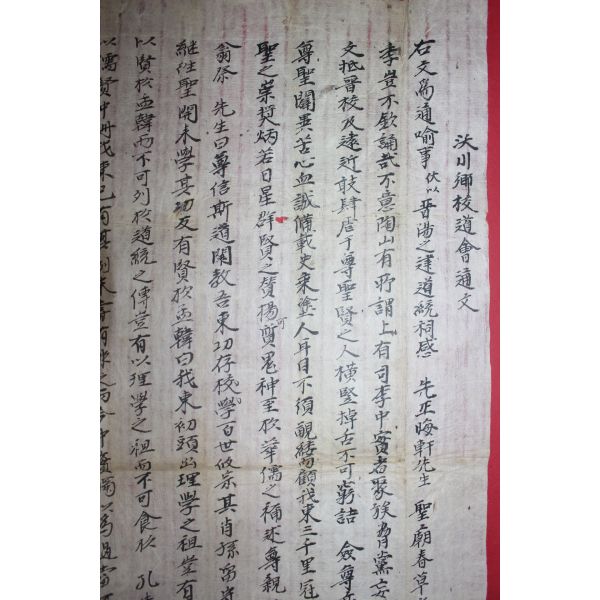 沃川鄕校道會通文
右文爲通喩事伏以晋陽之建道統祠感 先正晦軒先生 聖廟春草
李豈不欽誦哉不意陶山有所謂上有司李中賓者聚族脅黨妄
文抵晋校及遠近敢肆唐于尊聖賢之人橫竪掉舌不可窮詰 僉尊
尊聖闢異苦心血誠備載史乘塗人耳目不須覼縷而顧我東三千里冠
聖之崇奬炳若日星群賢之贊揚可質鬼神至於華儒之稱述尊親
翁祭 先生曰尊信斯道闡敎吾東功存校學百世攸宗其肖孫
繼往聖開來學其功反有賢於孟韓曰我東初頭出理學之祖豈有
以賢於孟韓而不可列於道統之傳豈有以理學之祖而不可食於 孔
以儒賢